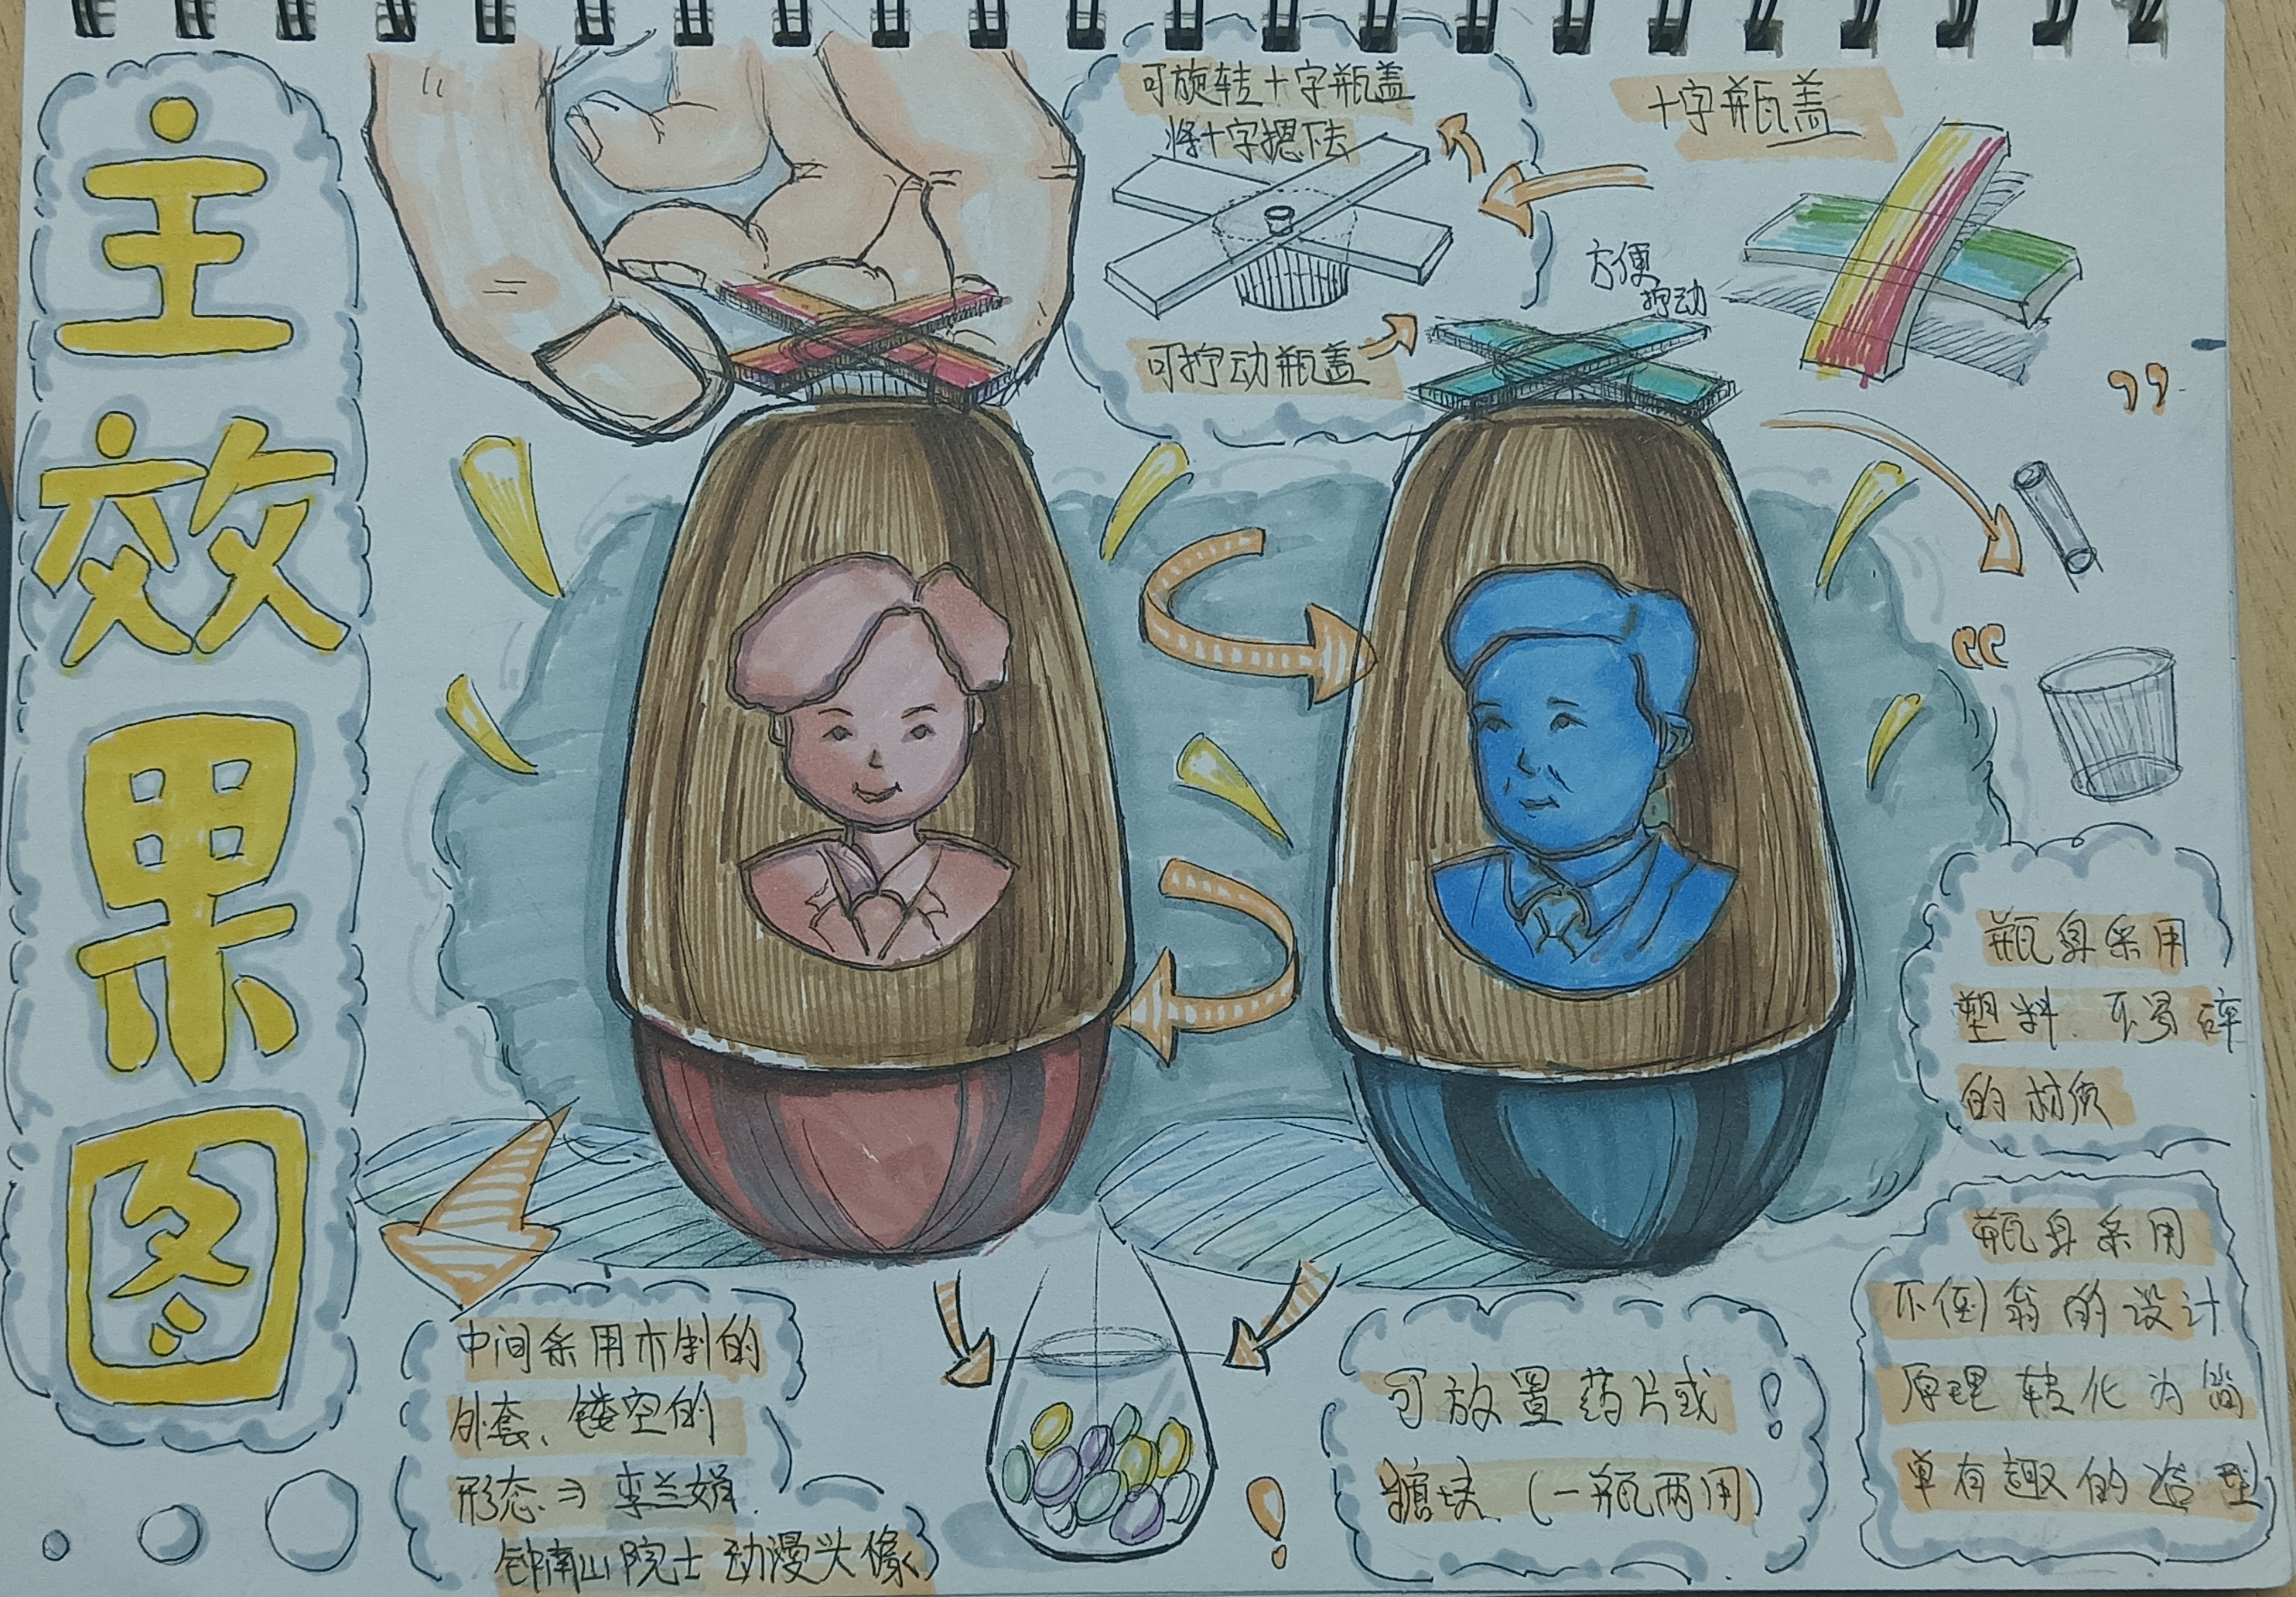 主效果图
可旋转十字瓶盖
将十字摁下去
十字瓶盖
方便
拧动
可拧动瓶盖
瓶身采用
塑料.不易碎
的材质
瓶身采用
不倒翁的设计
原理转化为简
单有趣的造型
中间采用木制的
外套、镂空的
形态⇒李兰娟.
钟南山院士动漫头像
可放置药片或
糖块.(一瓶两用)